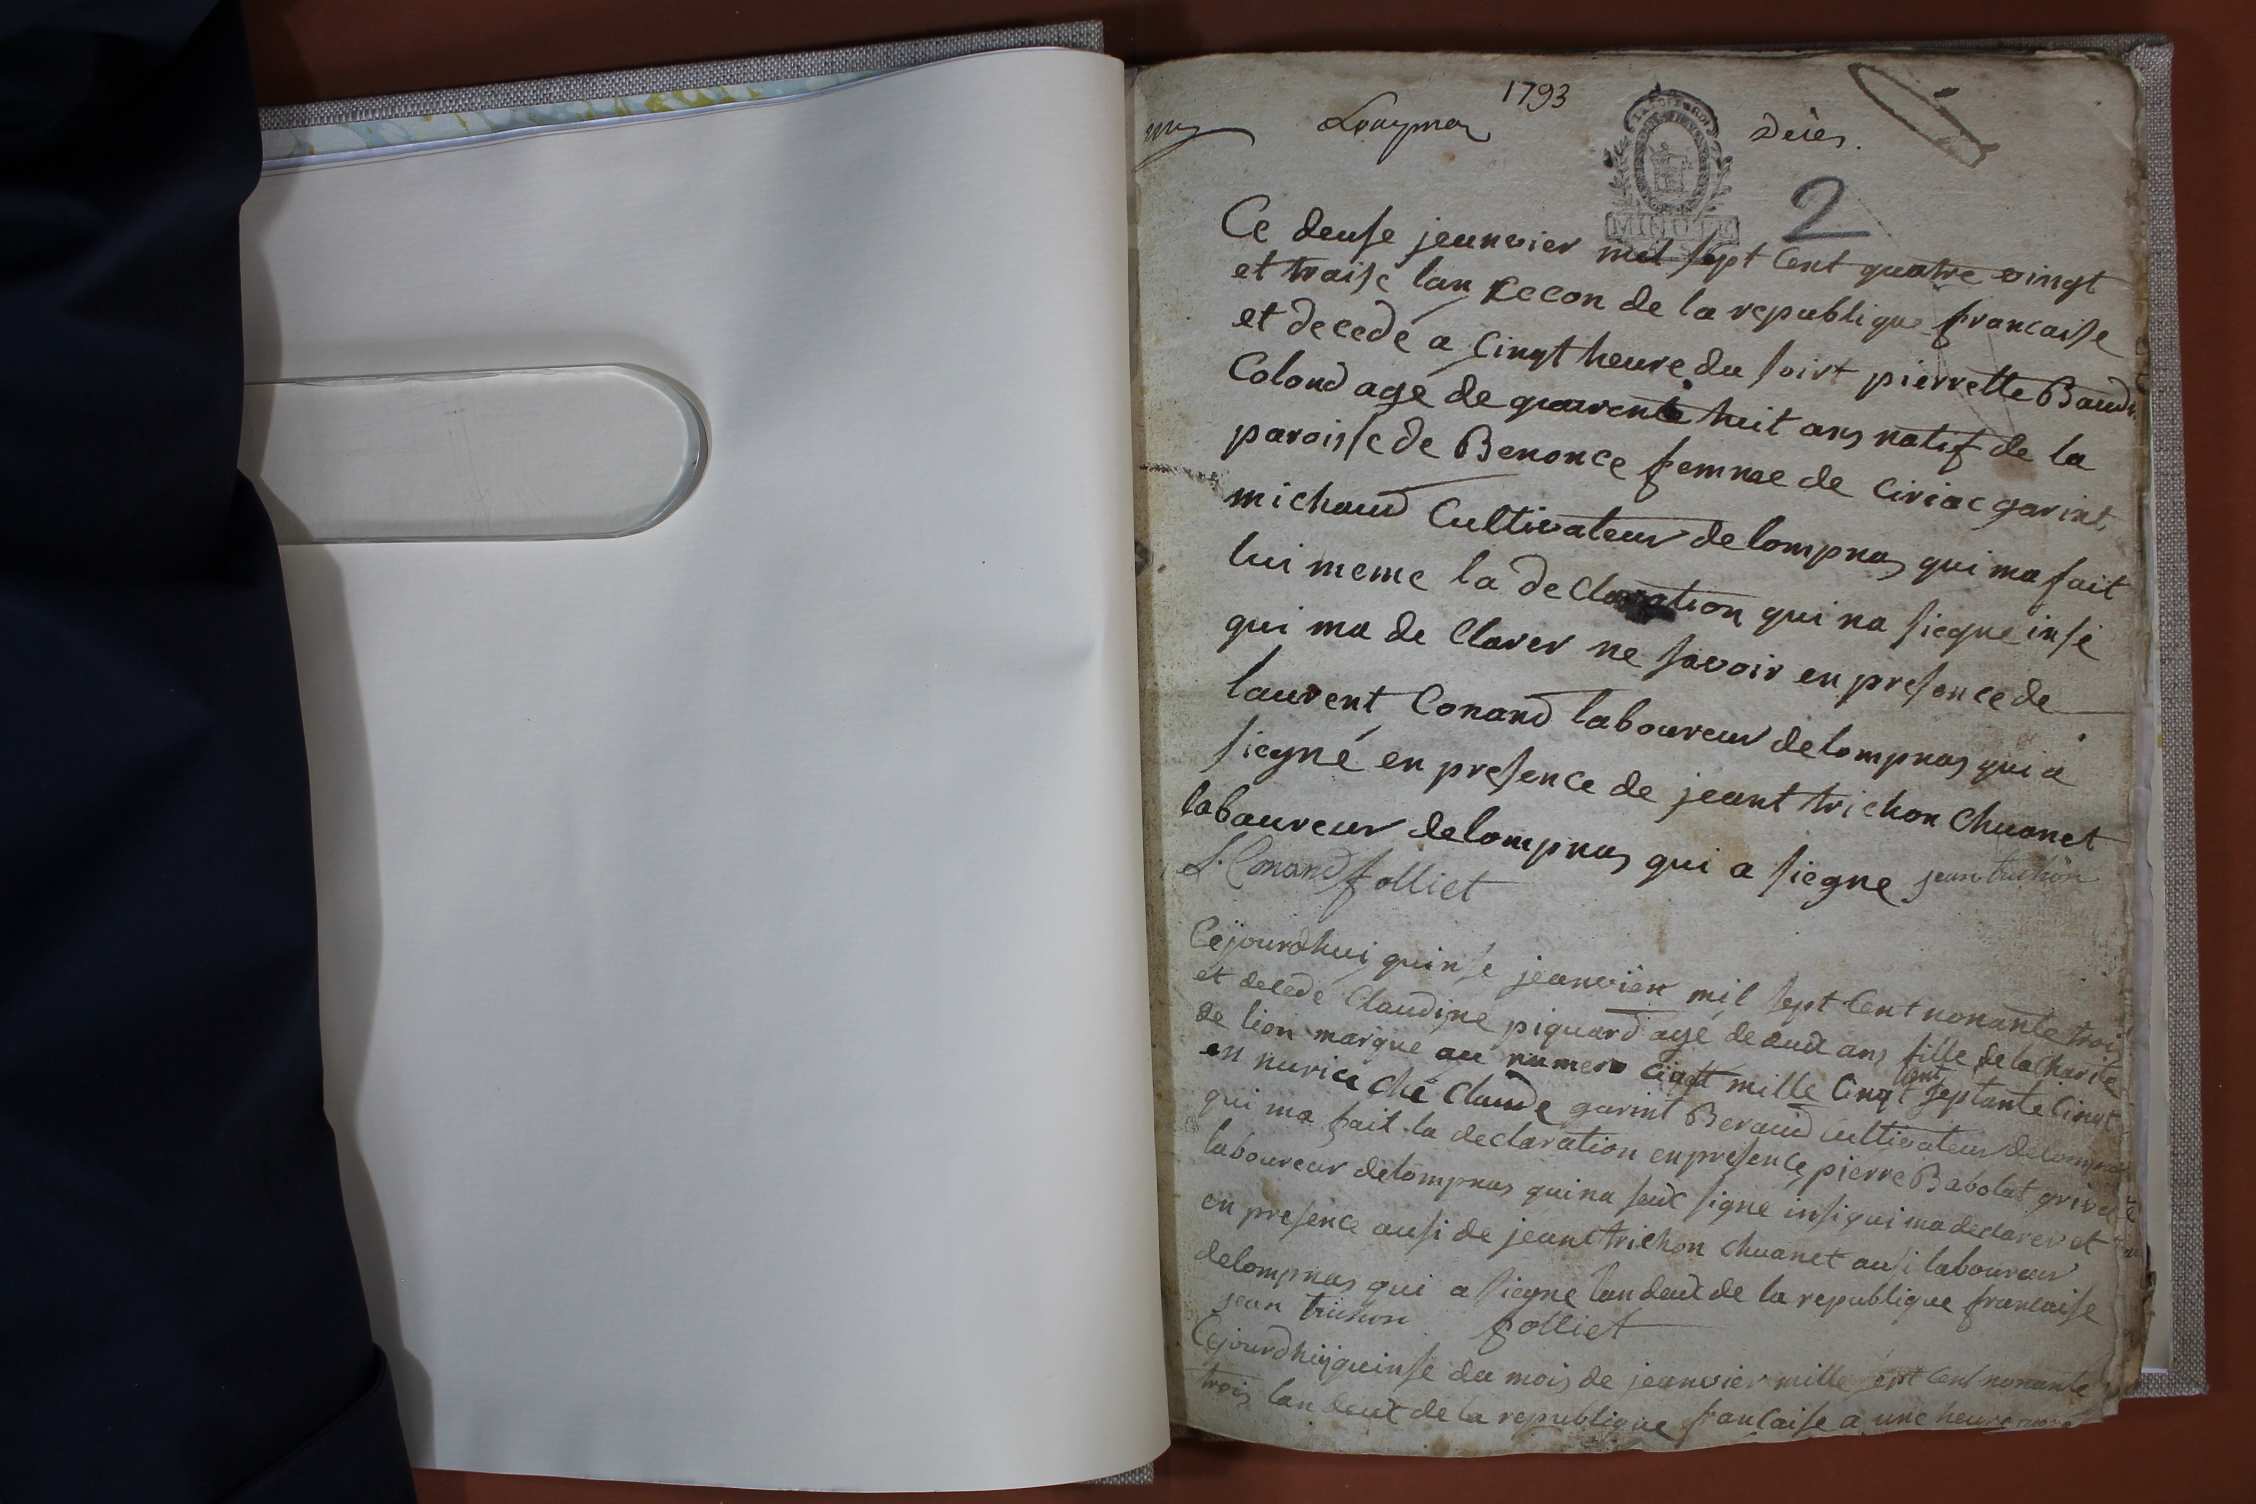 1793
Décès
2
MINUTE
Ce deuse jeanvier mil sept Cent quatre vingt
et traise lan Cecon de la republique francaisse
et decedé a Cinqt heure du soirt pierrette Baud
Colond agé de quarente huit ans natif de la
paroisse de Benonce femme de Ciriac garint
michaud Cultivateur delompnas qui ma fait
lui meme la declaration qui na siegne insi
qui ma de Clarer ne savoir en presence de
laurent Conand laboureur delompnas qui a
siegné en presence de jeant trichon Chuanet
laboureur delompnas qui a siegne jean trichon
L. Conand folliet
Cejourdhui quinse jeanvier mil sept Cent nonante trois
et decede Claudine piquard agé de deux ans fille de la Charité
de lion marque au numero Cinqt mille Cinqt Cent septante Cinqt
en nurice Ché Claude garint Beraud Cultivateur delompnas
qui ma fait la declaration en presence pierre Babolat
laboureur delompnas qui na seux signe insi qui ma declarer et
en presence ausi de jeant trichon Chuanet ausi laboureur
delompnas qui a siegne lan deux de la republique francaise
jean trichon folliet
Cejourdhuy quinse du mois de jeanvier mille sept Cent nonante
trois lan deux de la republique française a une heure